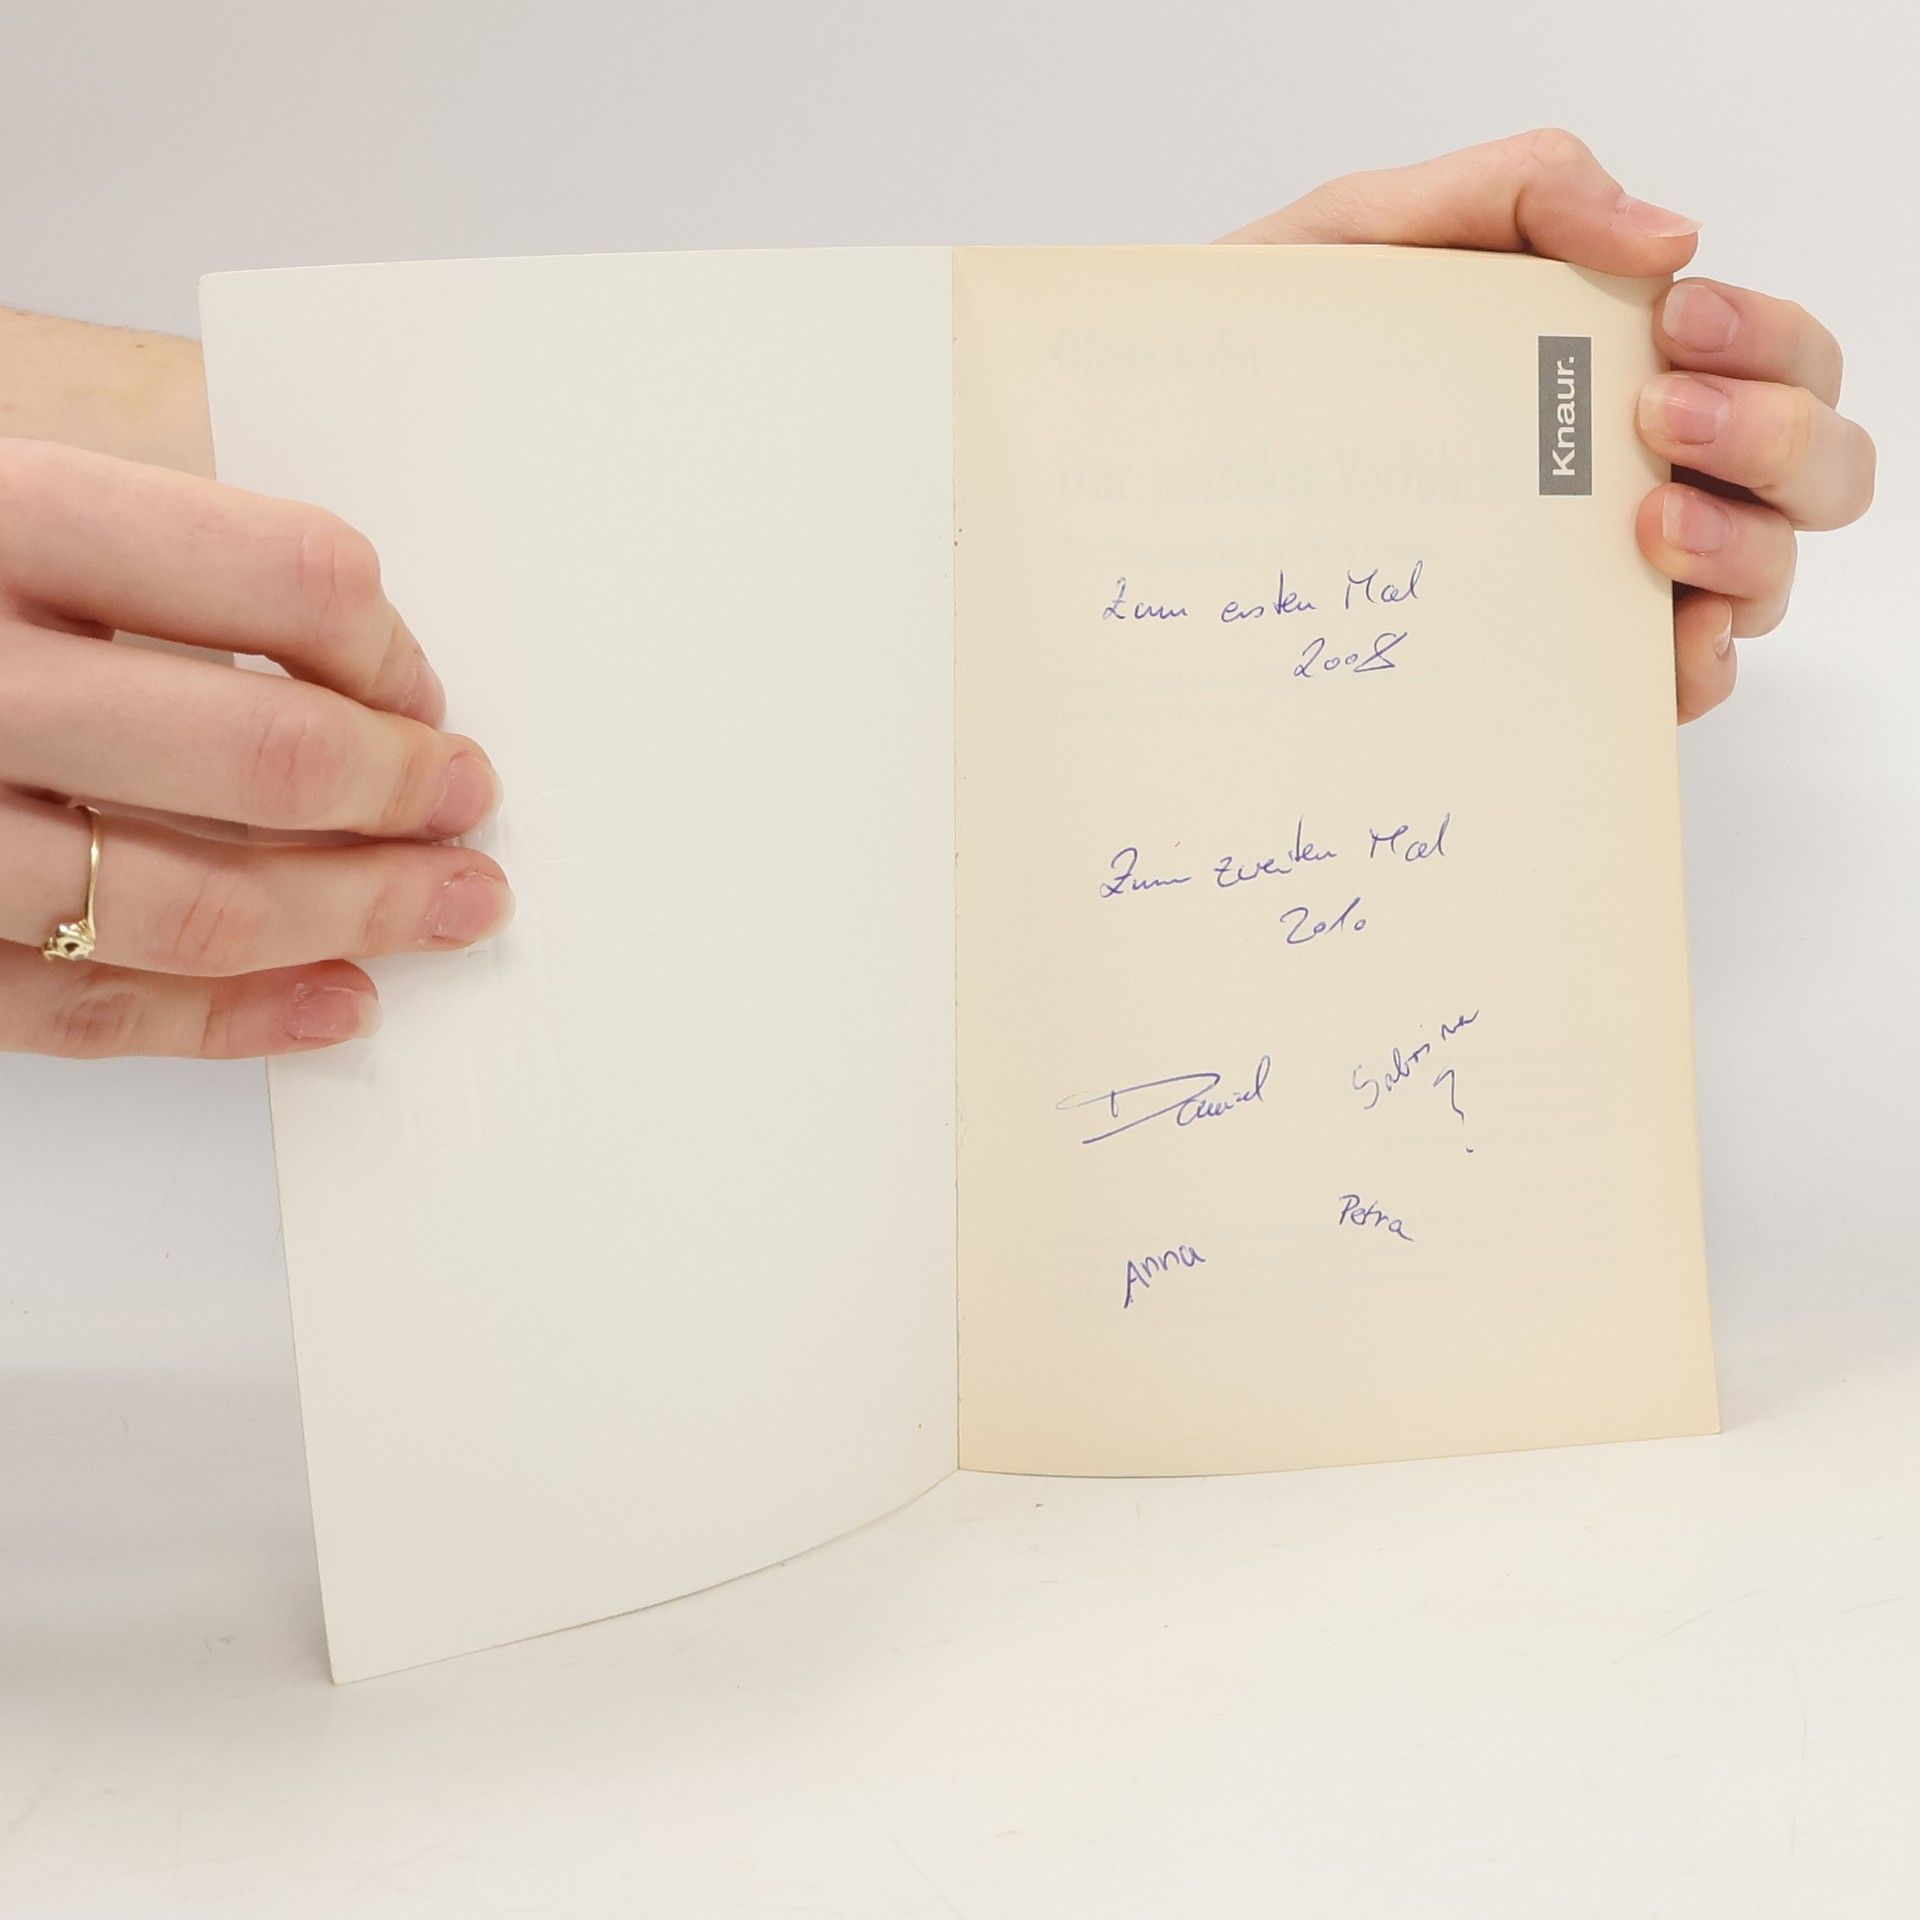 Knaur.
Oliver Kuhn
Der perfekte Verführer
Zum ersten Mal
2008
Zum zweiten Mal
2010
Daniel
Sabrina
?
Petra
Anna